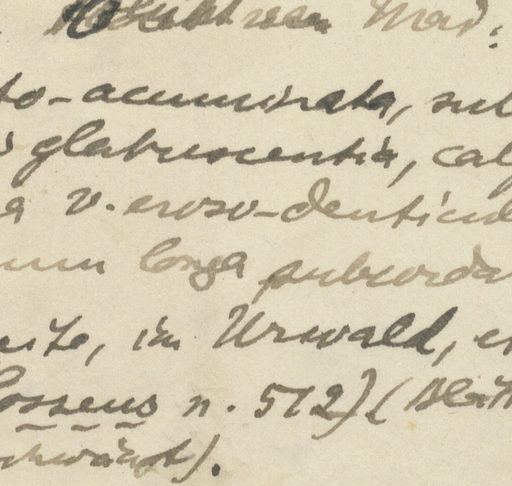 Mai:
to-acuminata, sub
glabrescentia, caly
a v. eroso-denticul
um longa subcorda
seite, im Urwald, e
Gossens n. 512) (Blätt
schwärzt).